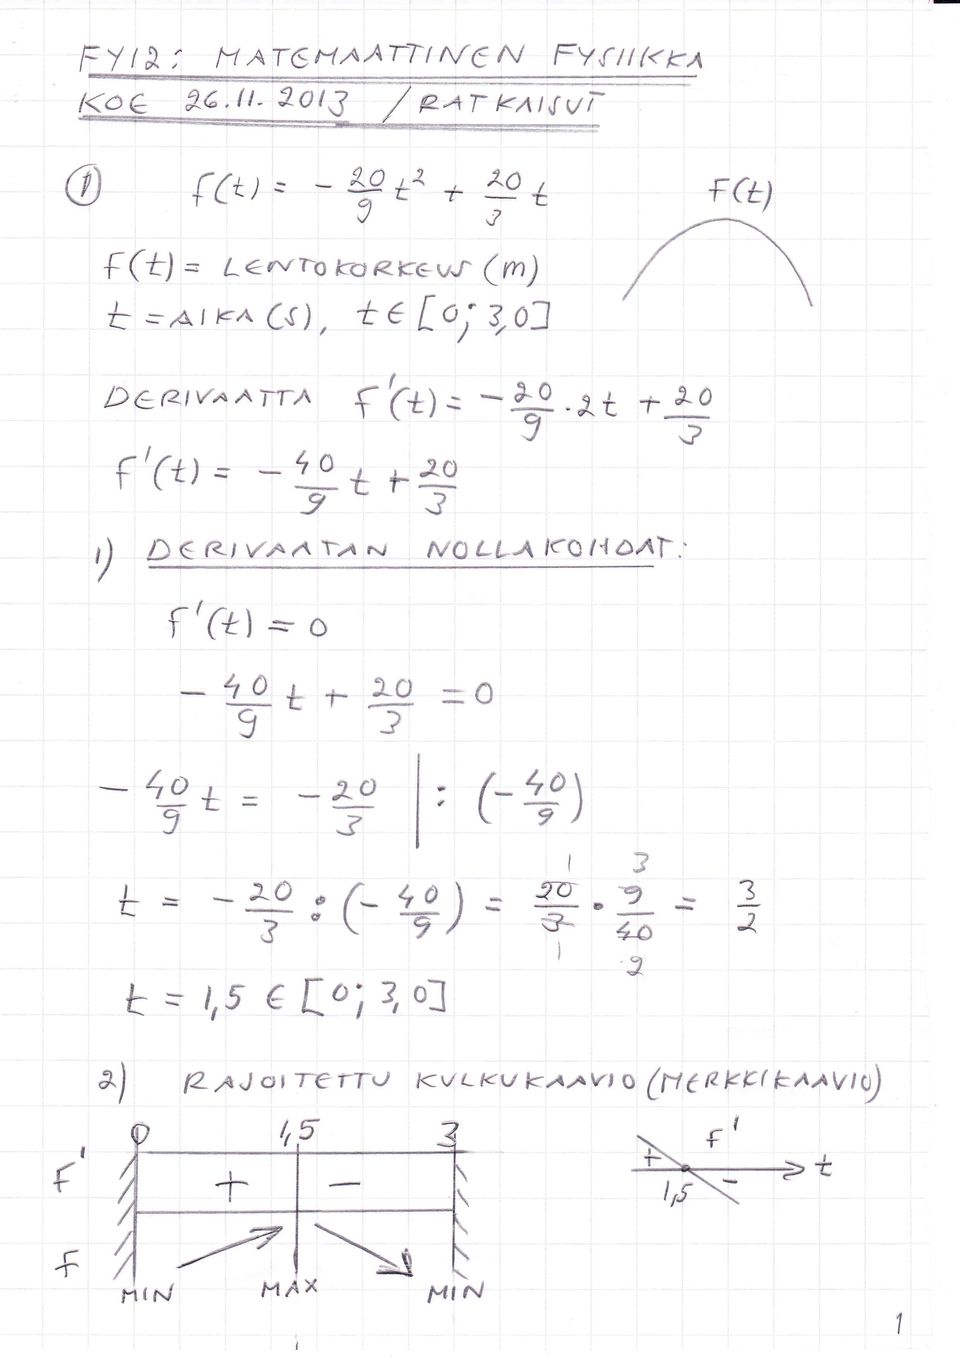 FY12: MATEMAATTINEN FYSIIKKA
KOE 26.11.2013 / RATKAISUT
① f(t) = - 20/9 t² + 20/3 t
F(t)
f(t) = LENTOKORKEUS (m)
t = AIKA (S), t ∈ [0; 3,0]
DERIVAATTA f'(t) = - 20/9 · 2t + 20/3
f'(t) = - 40/9 t + 20/3
1) DERIVAATAN NOLLAKOHDAT:
f'(t) = 0
- 40/9 t + 20/3 = 0
- 40/9 t = - 20/3 | : (- 40/9)
t = - 20/3 : (- 40/9) = 20/3 · 9/40 = 3/2
1 3
1 2
t = 1,5 ∈ [0; 3,0]
2) RAJOITETTU KULKUKAAVIO (MERKKIKAAVIO)
0 1,5 3
f' + -
f
MIN MAX MIN
f'
+ - t
1,5
1